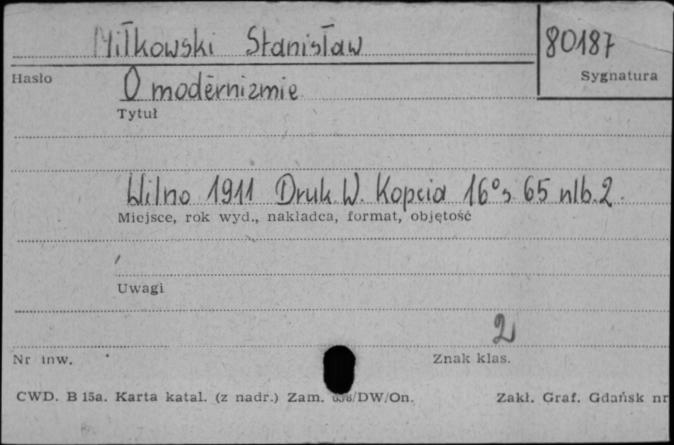 Miłkowski Stanisław 80187
Hasło Sygnatura
O modernizmie
Tytuł
Wilno 1911 Druk. W. Kopcia 16° s 65 nlb. 2.
Miejsce, rok wyd., nakładca, format, objętość
Uwagi
2
Nr inw. Znak klas.
CWD. B 15a. Karta katal. (z nadr.) Zam. /DW/On. Zakł. Graf. Gdańsk nr